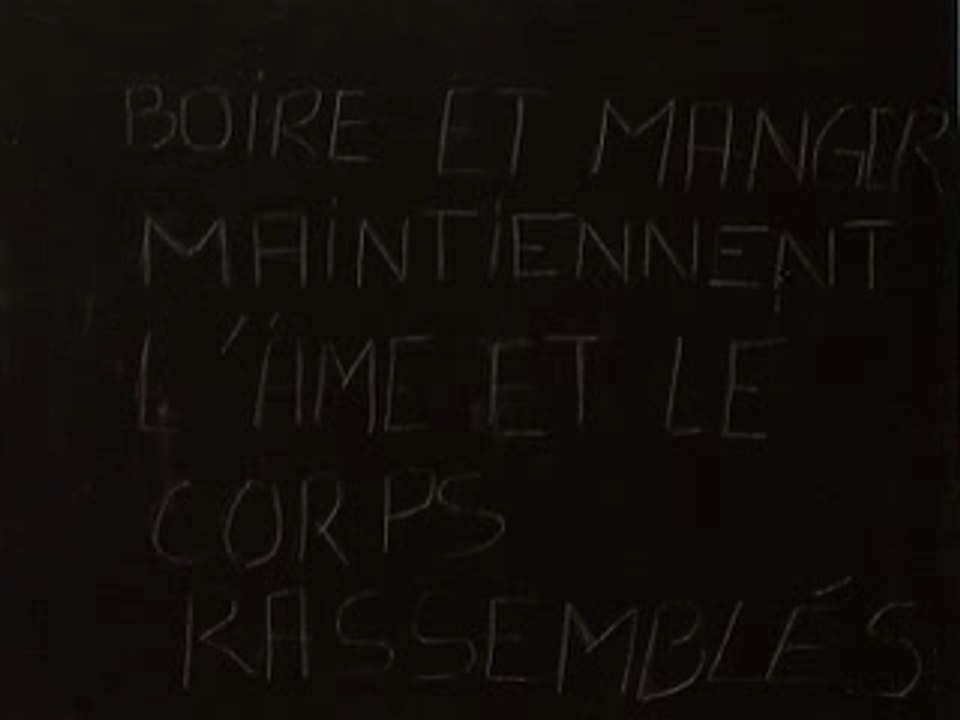 BOiRE ET MANGER
MAiNTiENNENT
L'ÂME ET LE
CORPS
RASSEMBLÉS